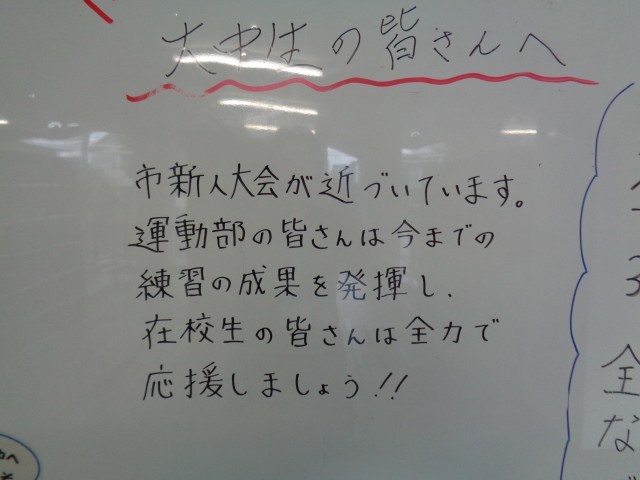 大中生の皆さんへ
市新人大会が近づいています。
運動部の皆さんは今までの
練習の成果を発揮し、
在校生の皆さんは全力で
応援しましょう!!
3
全
な
へ